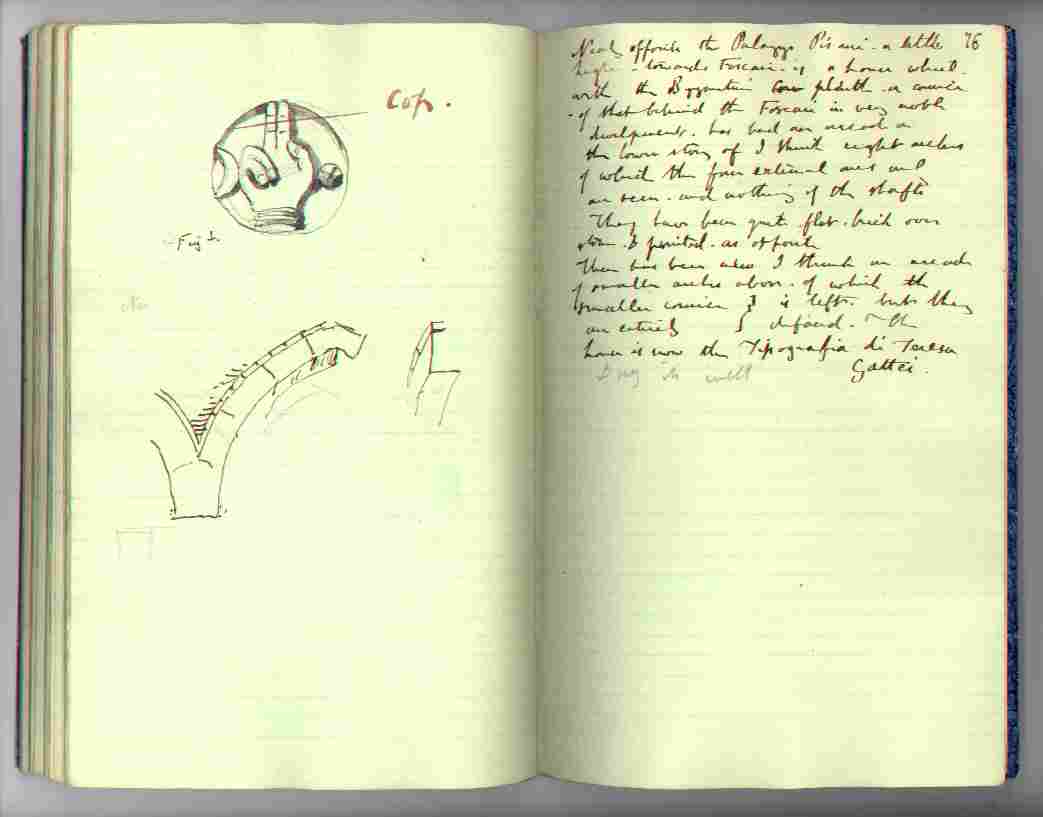 Cop.
Fig 1.
Nearly opposite the Palazzo Pisani - a little 76
higher - towards Foscari - is a house which
with the Byzantine plinth - a cornice
- of that behind the Foscari in very noble
developments. has had an arcade on
the lower story of I think eight arches
of which the four external ones only
are seen - and nothing of the shafts
They have been quite flat. brick over
stone & pointed. as opposite
There has been also I think an arcade
of smaller arches above. of which the
smaller cornice is left. but they
are entirely defaced. The
house is now the Tipografia di Teresa
Gattei.